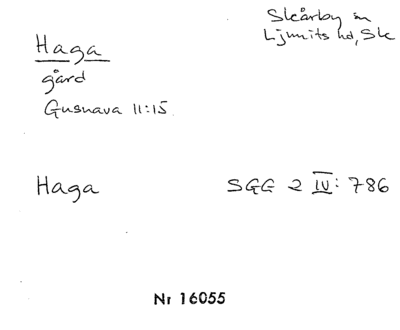 Haga
gård
Gusnava 11:15
Skårby sn
Ljunits hd, Sk
Haga
SGG 2 IV: 786
Nr 16055